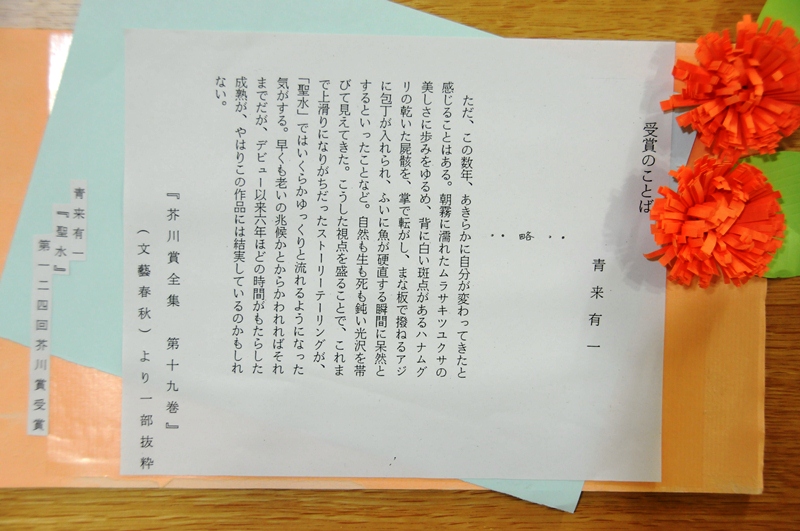 受賞のことば
青来有一
‥略‥
ただ、この数年、あきらかに自分が変わってきたと
感じることはある。朝霧に濡れたムラサキツユクサの
美しさに歩みをゆるめ、背に白い斑点があるハナムグ
リの乾いた屍骸を、掌で転がし、まな板で撥ねるアジ
に包丁が入れられ、ふいに魚が硬直する瞬間に呆然と
するといったことなど。自然も生も死も鈍い光沢を帯
びて見えてきた。こうした視点を盛ることで、これま
で上滑りになりがちだったストーリーテーリングが、
「聖水」ではいくらかゆっくりと流れるようになった
気がする。早くも老いの兆候かとからかわれればそれ
までだが、デビュー以来六年ほどの時間がもたらした
成熟が、やはりこの作品には結実しているのかもしれ
ない。
『芥川賞全集　第十九巻』
（文藝春秋）より一部抜粋
青来有一
『聖水』
第一二四回芥川賞受賞